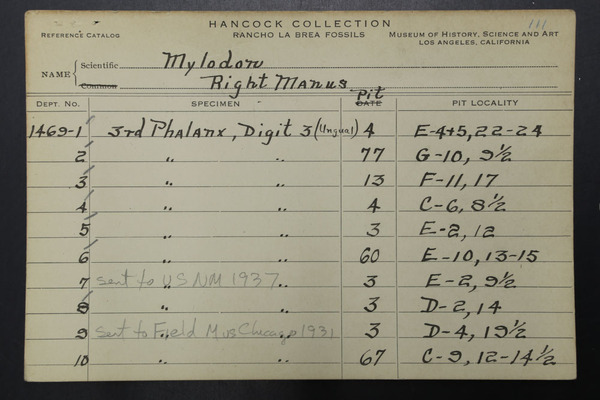 HANCOCK COLLECTION 111
REFERENCE CATALOG RANCHO LA BREA FOSSILS MUSEUM OF HISTORY, SCIENCE AND ART
LOS ANGELES, CALIFORNIA
NAME Scientific Mylodon
Common Right Manus
Pit
DEPT. NO. SPECIMEN DATE PIT LOCALITY
1469-1 3rd Phalanx, Digit 3 (Ungual) 4 E-4+5, 22-24
2 " " 77 G-10, 9½
3 " " 13 F-11, 17
4 " " 4 C-6, 8½
5 " " 3 E-2, 12
6 " " 60 E-10, 13-15
7 sent to USNM 1937 " " 3 E-2, 9½
8 " " 3 D-2, 14
9 sent to Field Mus Chicago 1931 " " 3 D-4, 19½
10 " " 67 C-9, 12-14½